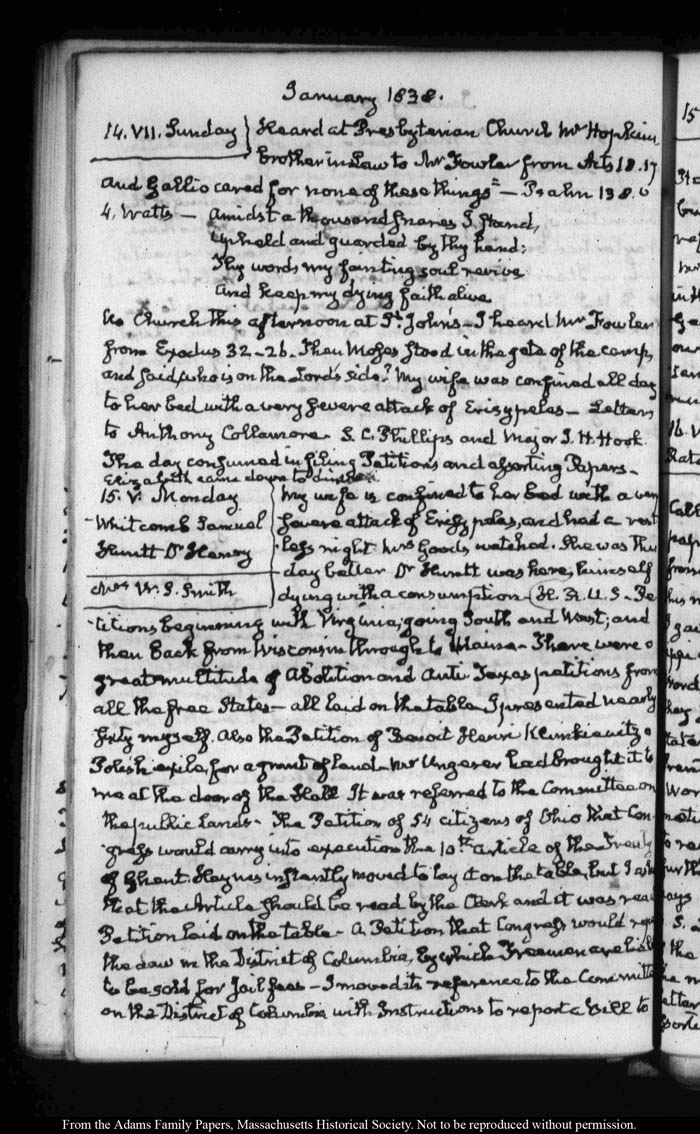 January 1838.
14. VII. Sunday } Heard at Presbyterian Church Mr Hopkins
brother in Law to Mr Fowler from Acts 18.17
and Gallio cared for none of these things" — Psalm 138.
4. Watts — Amidst a thousand snares I stand,
Upheld and guarded by thy hand:
Thy words my fainting soul revive
And keep my dying faith alive
Church this afternoon at St. John's — I heard Mr Fowler
from Exodus 32-26. Then Moses stood in the gate of the camp,
and said, who is on the Lord's side? My wife was confined all day
to her bed with a very severe attack of Erisypelas — Letters
to Anthony Collamore S. C. Phillips and Major J. H. Hook.
The day consumed in filing Petitions and assorting Papers —
Elizabeth came down to dinner.
15. V. Monday.
Whitcomb Samuel
Huntt Dr Henry
W. S. Smith
My wife is confined to her bed with a very
severe attack of Erisypelas, and had a rest
less night Mrs Goods watched. She was this
day better Dr Huntt was here, himself
dying with a consumption — H. R. U. S. Pe
titions beginning with Virginia, going South and West; and
then back from Wisconsin through to Maine — There were a
great multitude of Abolition and Anti Texas petitions from
all the free States — all laid on the table I presented nearly
fifty myself. Also the Petition of Benoit Henri Klimkiewitz a
Polish exile, for a grant of land. Mr Ungerer had brought it to
me at the door of the Hall It was referred to the Committee on
the public lands. The Petition of 54 citizens of Ohio that Con-
gress would carry into execution the 10th article of the Treaty
of Ghent. Haynes instantly moved to lay it on the table, but I ask
that the Article should be read by the Clerk and it was read
Petition laid on the table — A Petition that Congress would
the Law in the District of Columbia, by which Freemen are
to be sold for Jail fees — I moved its reference to the Committee
on the District of Columbia with Instructions to report a Bill to
From the Adams Family Papers, Massachusetts Historical Society. Not to be reproduced without permission.